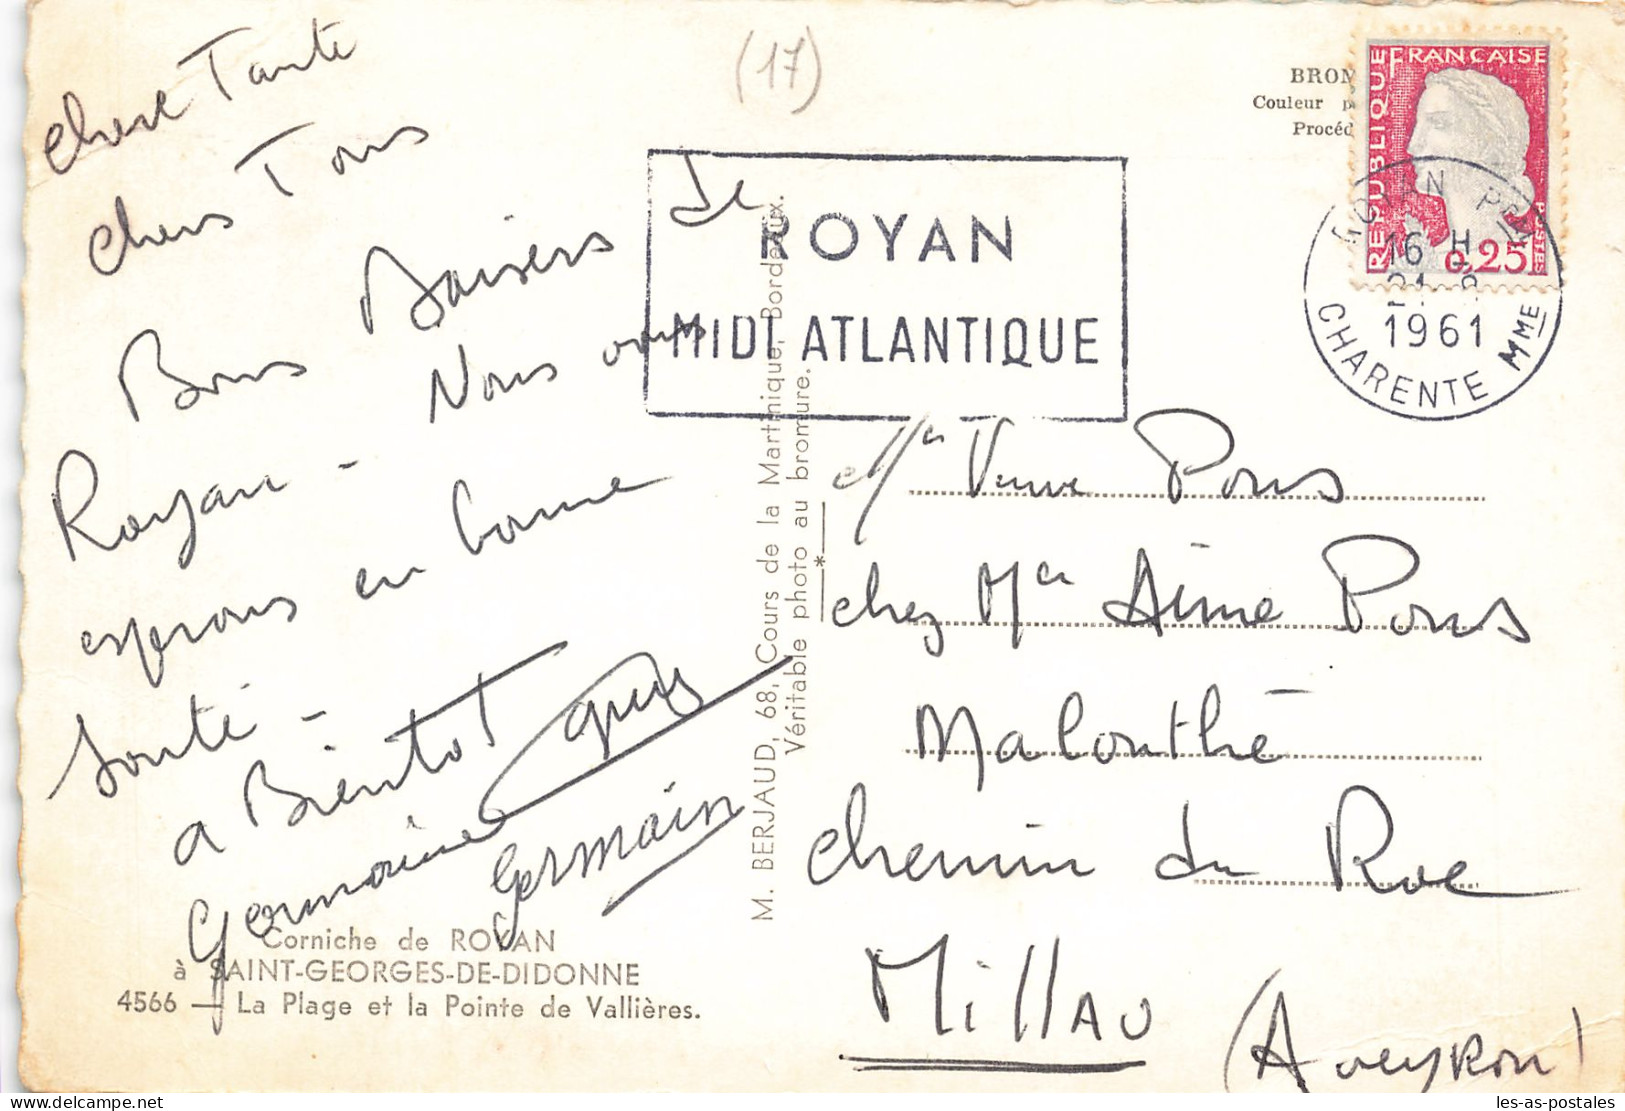 (17)
chere Tante
chers Tous
Bons Baisers de
Royan - Nous vous
esperons en bonne
santé -
a Bientot
Guy
Germaine
Germain
Corniche de ROYAN
à SAINT-GEORGES-DE-DIDONNE
4566 — La Plage et la Pointe de Vallières.
M. BERJAUD, 68, Cours de la Martinique, Bordeaux.
Véritable photo au bromure.
*
ROYAN
MIDI ATLANTIQUE
BROM
Couleur
Procéd
RÉPUBLIQUE FRANÇAISE
0,25
POSTES
ROYAN PPAL
16 H
21-8
1961
CHARENTE MME
Me Veuve Pons
chez Mr Aimé Pons
Malouthé
chemin du Roc
Millau
(Aveyron)
les-as-postales
delcampe.net